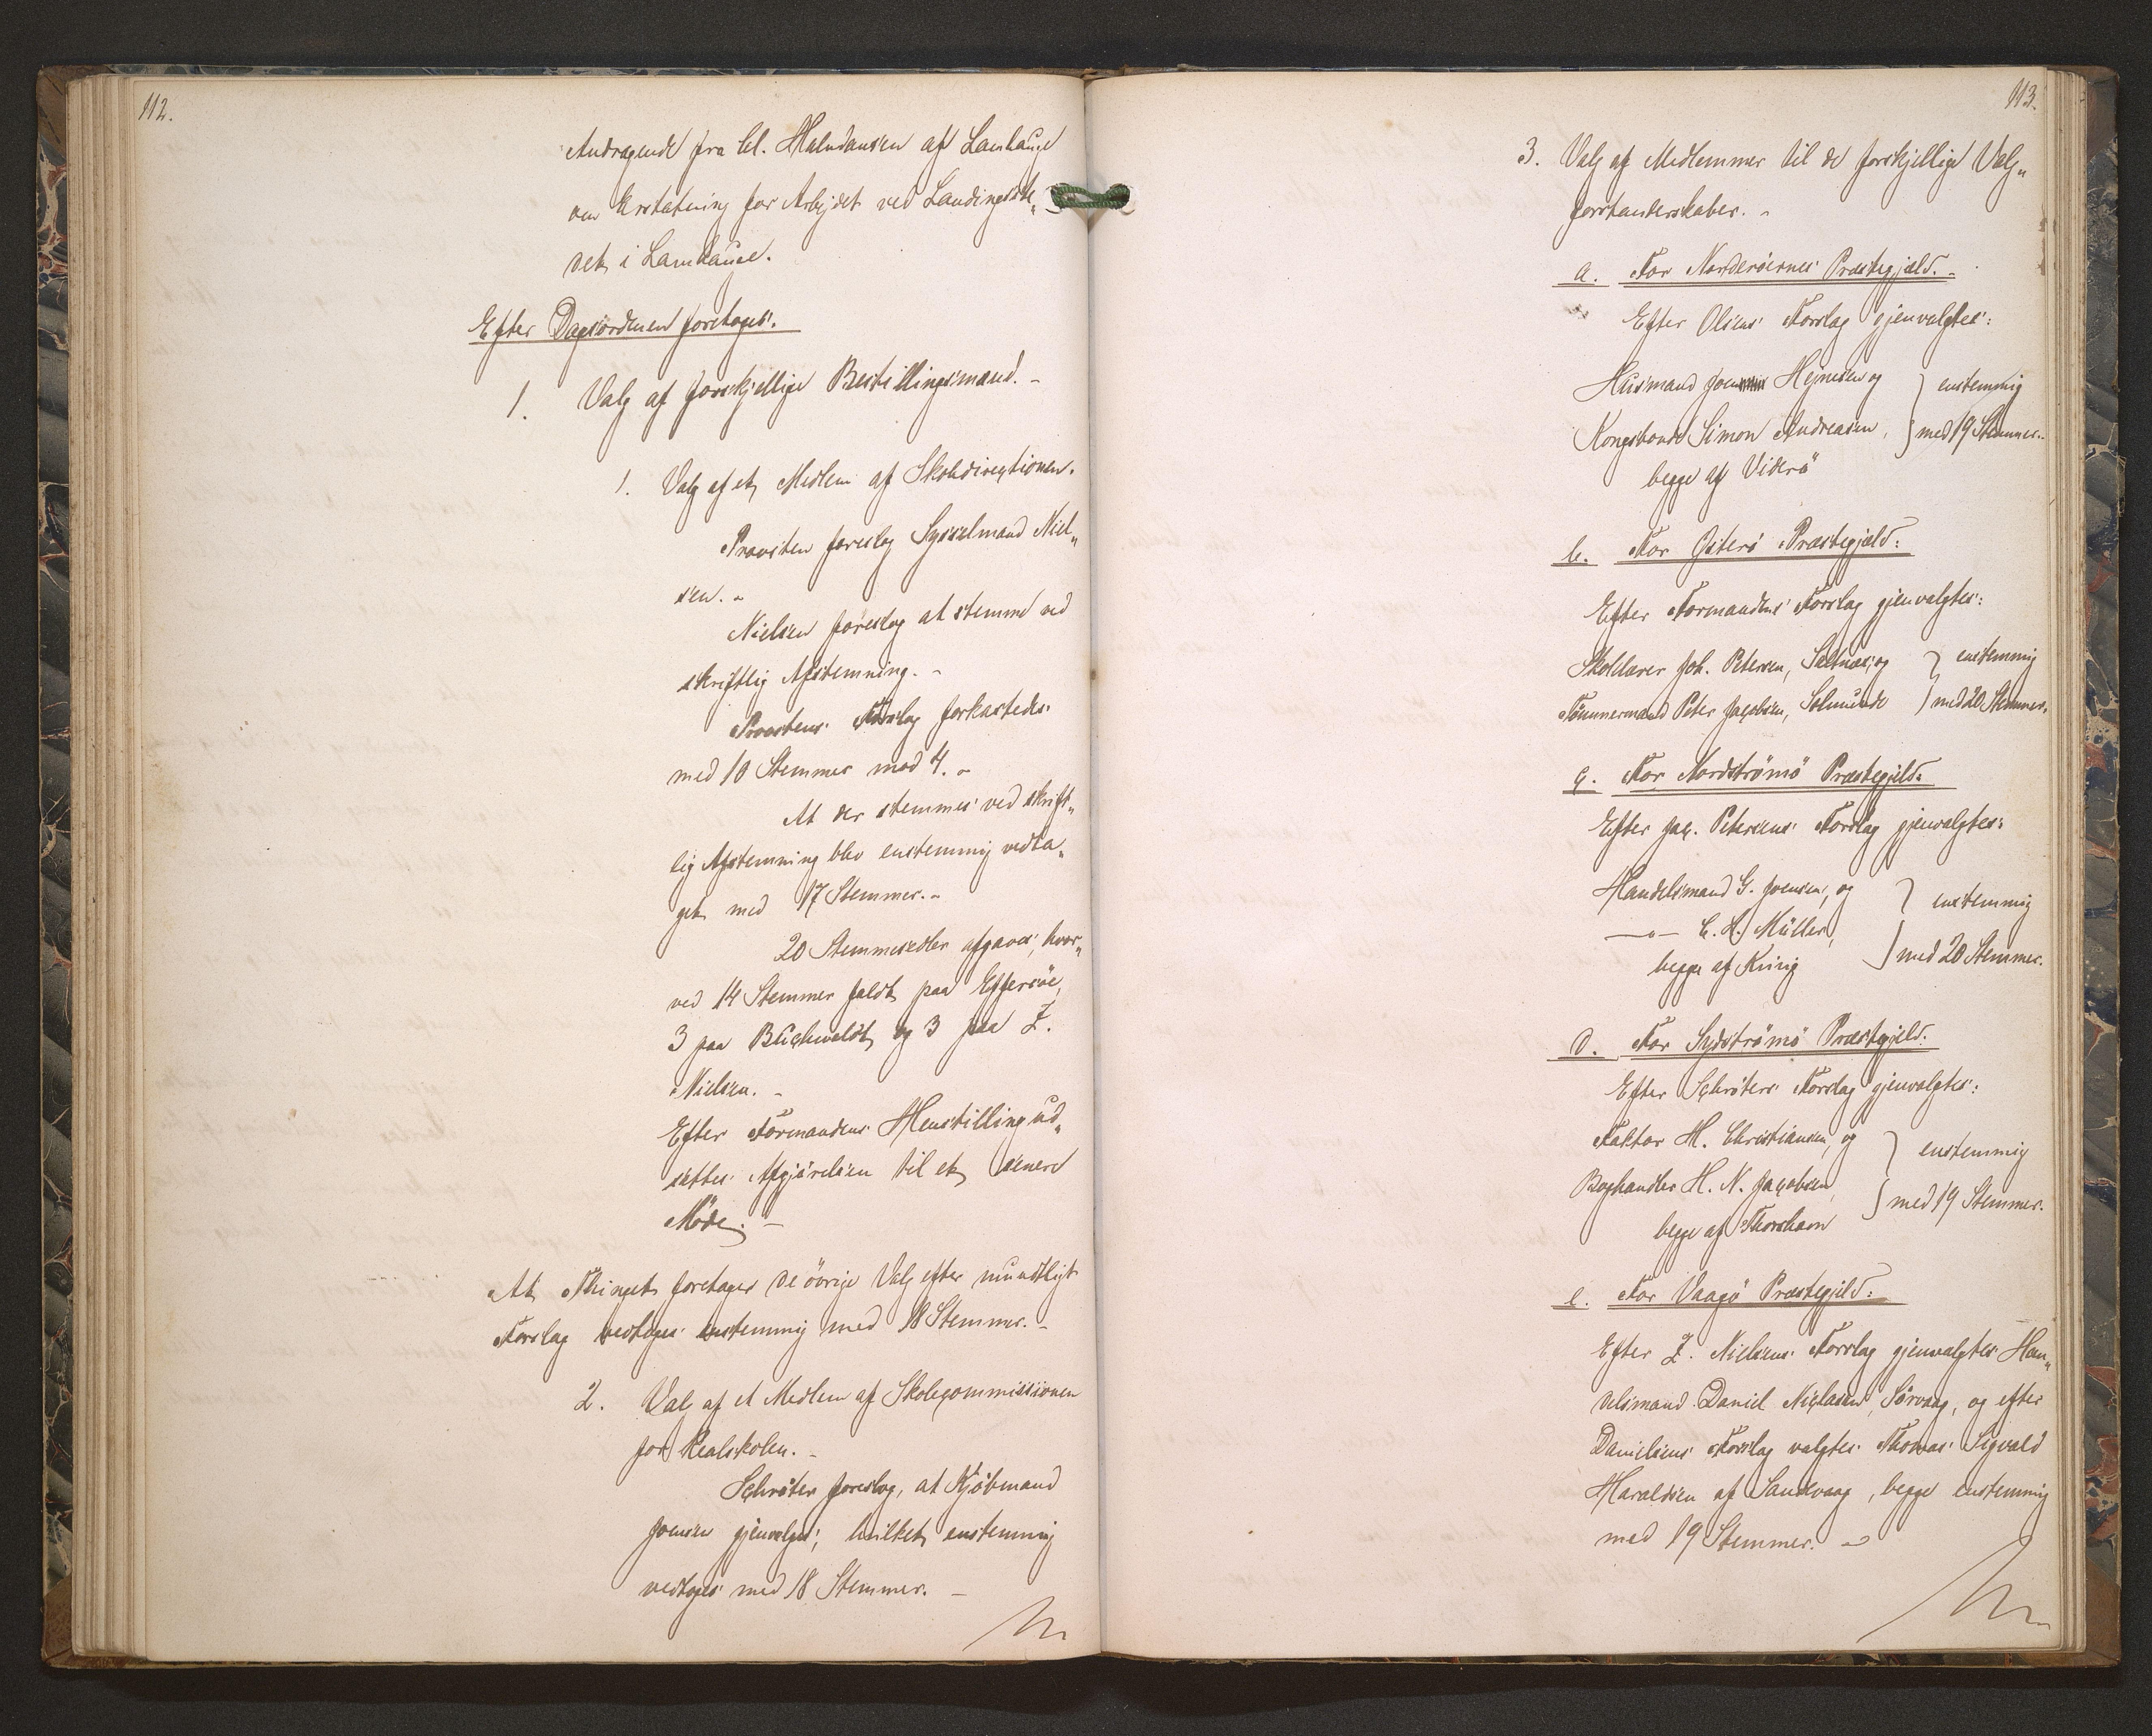 112.
Andragende fra Cl. Malmdansen af Lamhauge
om Erstatning for Arbejdet ved Landingsste„
det i Lamhauge.
Efter Dagsordenen foretoges:
1. Valg af forskjellige Bestillingsmænd. -
1. Valg af et Medlem af Skoledirectionen.
Provsten foreslog Sysselmand Niel„
sen. -
Nielsen foreslog at stemme ved
skriftlig Afstemning. -
Provstens Forslag forkastedes
med 10 Stemmer mod 4. -
At der stemmes ved skrift„
lig Afstemning blev enstemmig vedta„
get med 17 Stemmer. -
20 Stemmesedler afgaves, hvor„
ved 14 Stemmer faldt paa Effersöe,
3 paa Buchwaldt og 3 paa Z.
Nielsen. -
Efter Formandens Henstilling ud„
sattes Afgjörelsen til et senere
Möde. -
At Thinget foretager de övrige Valg efter mundtligt
Forslag vedtoges enstemmig med 18 Stemmer. -
2. Valg af et Medlem af Skolecommissionen
for Realskolen. -
Schröter foreslog, at Kjöbmand
Joensen gjenvalgtes, hvilket enstemmig
vedtoges med 18 Stemmer. -
113.
3. Valg af Medlemmer til de forskjellige Valg„
forstanderskaber. -
a. For Norderöernes Præstegjæld. -
Efter Olsens Forslag gjenvalgtes:
Husmand Joen Hejnesen og } enstemmig
Kongsbonde Simon Andreasen, } med 19 Stemmer.
begge af Viderö
b. For Österö Præstegjæld:
Efter Formandens Forslag gjenvalgtes:
Skolelærer Joh. Petersen, Saltnæs, og } enstemmig
Tömmermand Peter Jacobsen, Solmunde } med 20 Stemmer.
c. For Nordströmö Præstegjæld.
Efter Jac. Petersens Forslag gjenvalgtes:
Handelsmand G. Joensen, og } enstemmig
—„— C. L. Müller, } med 20 Stemmer.
begge af Kvivig
d. For Sydströmö Præstegjæld.
Efter Schröters Forslag gjenvalgtes:
Faktor H. Christiansen, og } enstemmig
Boghandler H. N. Jacobsen, } med 19 Stemmer.
begge af Thorshavn
e. For Vaagö Præstegjæld:
Efter Z. Nielsens Forslag gjenvalgtes Han„
delsmand Daniel Niclasen, Sörvaag, og efter
Danielsens Forslag valgtes Thomas Sigvald
Haraldsen af Sandevaag, begge enstemmig
med 19 Stemmer. -